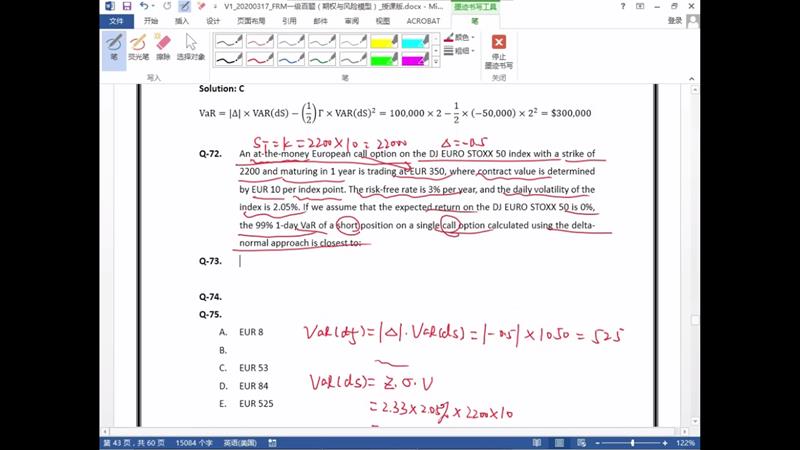 V1_20200317_FRM一级百题（期权与风险模型）_授课版.docx - Mi...
墨迹书写工具
文件
开始
插入
设计
页面布局
引用
邮件
审阅
视图
ACROBAT
笔
登录
笔
荧光笔
擦除
选择对象
颜色
粗细
停止
墨迹书写
写入
笔
关闭
Solution: C
VaR = |Δ| × VAR(dS) − (1/2) Γ × VAR(dS)² = 100,000 × 2 − 1/2 × (−50,000) × 2² = $300,000
ST = K = 2200×10 = 22000 Δ = -0.5
Q-72. An at-the-money European call option on the DJ EURO STOXX 50 index with a strike of
2200 and maturing in 1 year is trading at EUR 350, where contract value is determined
by EUR 10 per index point. The risk-free rate is 3% per year, and the daily volatility of the
index is 2.05%. If we assume that the expected return on the DJ EURO STOXX 50 is 0%,
the 99% 1-day VaR of a short position on a single call option calculated using the delta-
normal approach is closest to:
Q-73.
Q-74.
Q-75.
A. EUR 8
B.
C. EUR 53
D. EUR 84
E. EUR 525
VaR(df) = |Δ|. VaR(ds) = |-0.5| × 1050 = 525
VaR(ds) = Z.σ.V
= 2.33×2.05%×2200×10
=
第 43 页，共 60 页
15084 个字
英语(美国)
122%